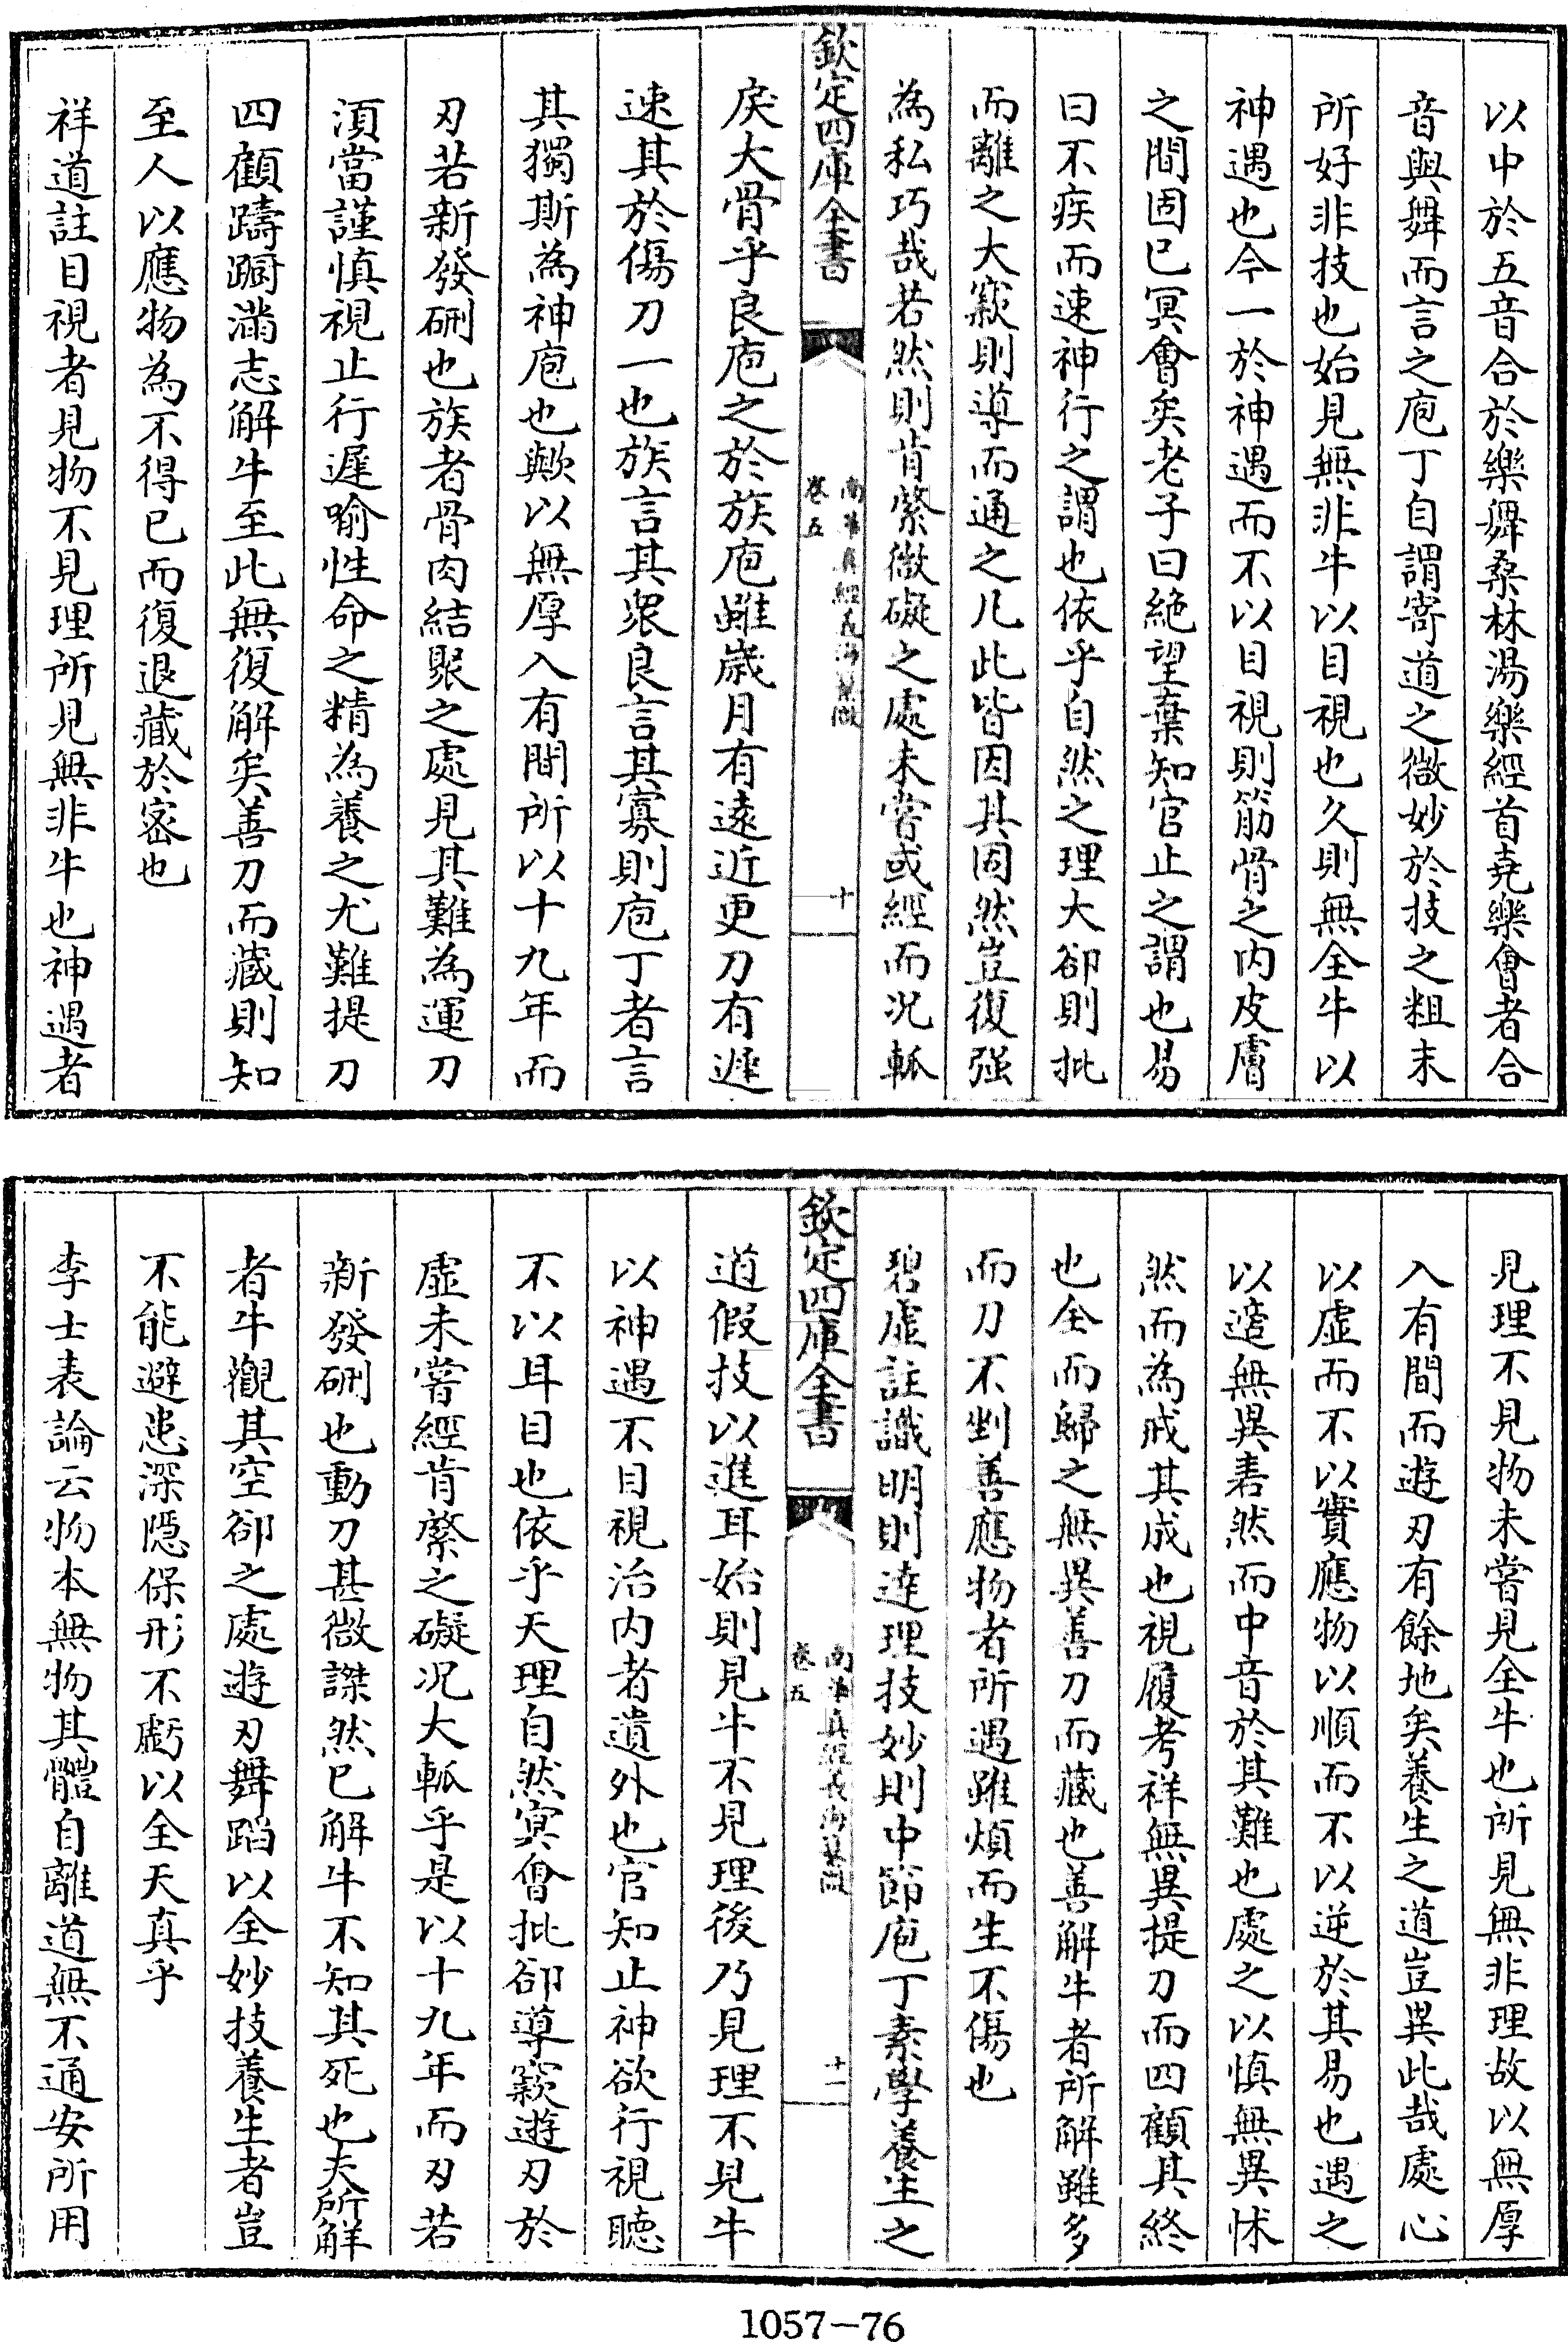 以中於五音合於樂舞桑林湯樂經首堯樂會者合
音與舞而言之庖丁自謂寄道之微妙於技之粗末
所好非技也始見無非牛以目視也久則無全牛以
神遇也今一於神遇而不以目視則筋骨之內皮膚
之間固已冥會矣老子曰絕望棄知官止之謂也易
曰不疾而速神行之謂也依乎自然之理大卻則批
而離之大窾則導而通之凡此皆因其固然豈復强
為私巧哉若然則肯綮微礙之處未嘗或經而况軱
欽定四庫全書
南華真經義海纂微
卷五
十
戾大骨乎良庖之於族庖雖歲月有遠近更刀有遲
速其於傷刀一也族言其衆良言其寡則庖丁者言
其獨斯為神庖也歟以無厚入有間所以十九年而
刃若新發硎也族者骨肉結聚之處見其難為運刀
湏當謹慎視止行遲喻性命之精為養之尤難提刀
四顧躊躕滿志解牛至此無復解矣善刀而藏則知
至人以應物為不得已而復退藏於密也
祥道註目視者見物不見理所見無非牛也神遇者
見理不見物未嘗見全牛也所見無非理故以無厚
入有間而遊刃有餘地矣養生之道豈異此哉處心
以虛而不以實應物以順而不以逆於其易也遇之
以適無異砉然而中音於其難也處之以慎無異怵
然而為戒其成也視履考祥無異提刀而四顧其終
也全而歸之無異善刀而藏也善解牛者所解雖多
而刀不剉善應物者所遇雖煩而生不傷也
碧虛註識明則達理技妙則中節庖丁素學養生之
欽定四庫全書
南華真經義海纂微
卷五
十一
道假技以進耳始則見牛不見理後乃見理不見牛
以神遇不目視治內者遺外也官知止神欲行視聽
不以耳目也依乎天理自然冥會批郤導窾遊刃於
虛未嘗經肯綮之礙况大軱乎是以十九年而刃若
新發硎也動刀甚微謋然已解牛不知其死也夫所解
者牛觀其空郤之處遊刃舞蹈以全妙技養生者豈
不能避患深隱保形不虧以全天真乎
李士表論云物本無物其體自離道無不通安所用
1057-76